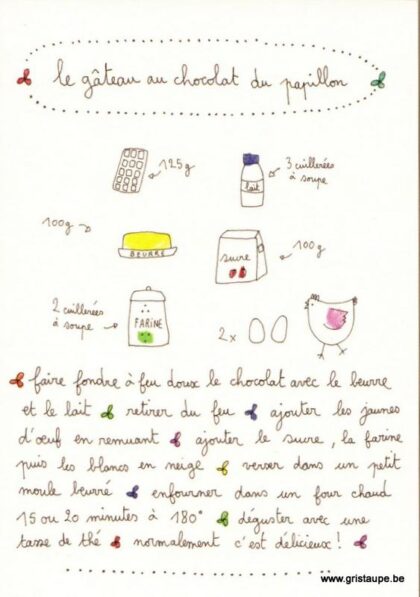 le gâteau au chocolat du papillon
125g
3 cuillerées
à soupe
lait
100g
BEURRE
sucre
100g
2 cuillerées
à soupe
FARINE
2x
faire fondre à feu doux le chocolat avec le beurre
et le lait retirer du feu ajouter les jaunes
d'œuf en remuant ajouter le sucre, la farine
puis les blancs en neige verser dans un petit
moule beurré enfourner dans un four chaud
15 ou 20 minutes à 180° déguster avec une
tasse de thé normalement c'est délicieux!
www.gristaupe.be